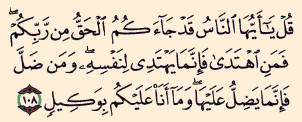 قُلْ يَٰٓأَيُّهَا ٱلنَّاسُ قَدْ جَآءَكُمُ ٱلْحَقُّ مِن رَّبِّكُمْ ۖ
فَمَنِ ٱهْتَدَىٰ فَإِنَّمَا يَهْتَدِى لِنَفْسِهِۦ ۖ وَمَن ضَلَّ
فَإِنَّمَا يَضِلُّ عَلَيْهَا ۖ وَمَآ أَنَا۠ عَلَيْكُم بِوَكِيلٍ ١٠٨